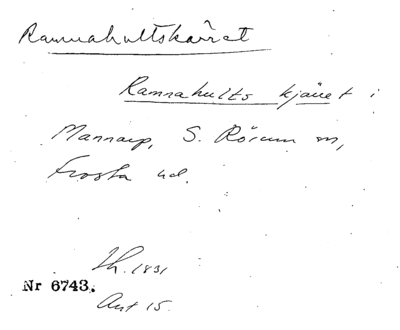 Ramnahultskärret
Ramnahults kjäret i
Mannarp, S. Rörum sn,
Frosta hd.
Lh. 1831
Nr 6743.
Akt 15.